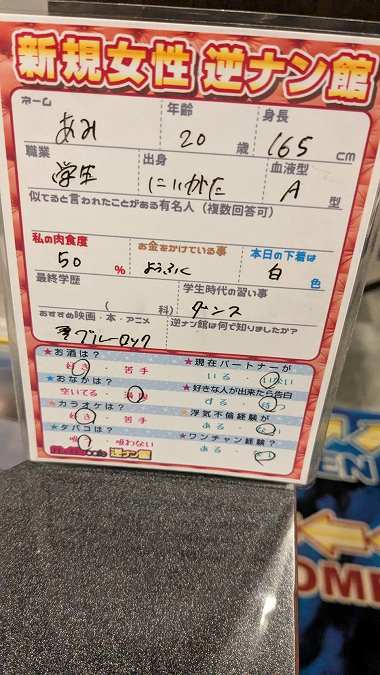 新規女性 逆ナン館
ネーム 年齢 身長
あみ 20 歳 165 cm
職業 出身 血液型
学生 にいがた A 型
似てると言われたことがある有名人（複数回答可）
私の肉食度 お金をかけている事 本日の下着は
50 % ようふく 白 色
最終学歴 学生時代の習い事
( 科) ダンス
おすすめ映画・本・アニメ 逆ナン館は何で知りましたか？
ブルーロック
★お酒は？ ★現在パートナーが
好き・苦手 いる・いない
★おなかは？ ★好きな人が出来たら告白
空いてる・満腹 する・待つ
★カラオケは？ ★浮気不倫経験が
好き・苦手 ある・ない
★タバコは？ ★ワンチャン経験？
吸う・吸わない ある・ない
逆ナン館
EN
OME